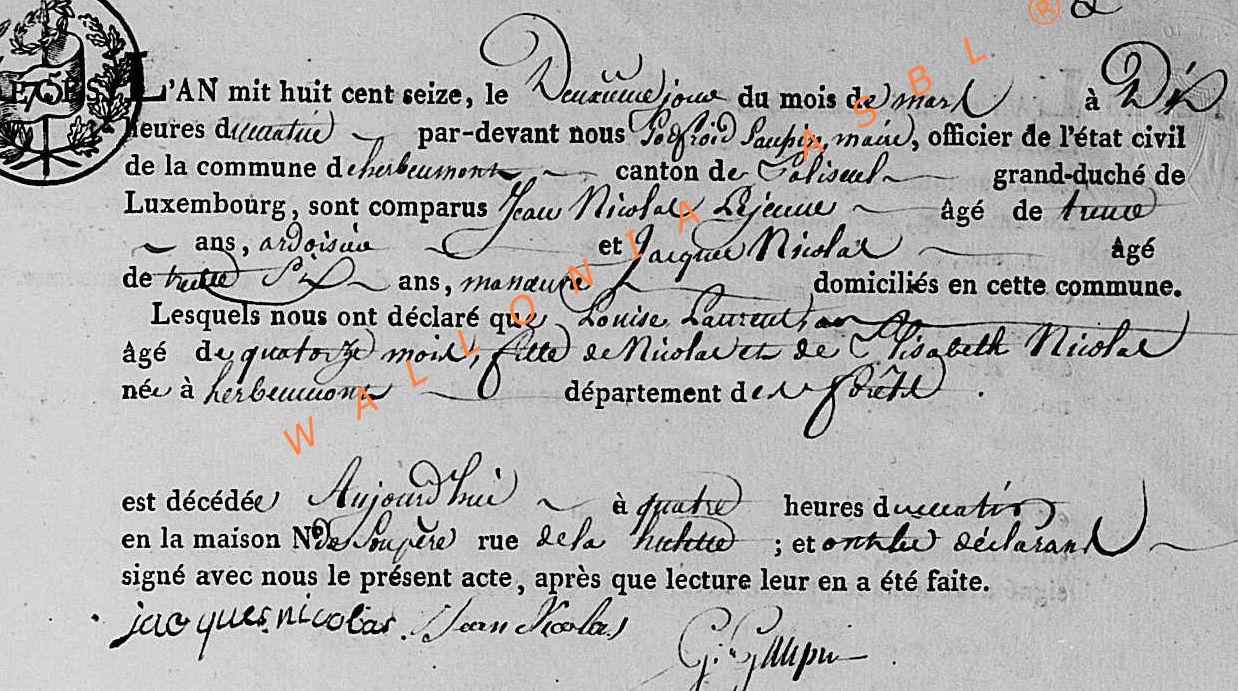 L'AN mit huit cent seize, le Deuxieme jour du mois de mars à Dix
heures du matin par-devant nous Godfroid Gaupin, maire, officier de l'état civil
de la commune d'herbeumont canton de Paliseul grand-duché de
Luxembourg, sont comparus Jean Nicolas Lejeune âgé de trente
ans, ardoisier et Jacques Nicolas âgé
de trente Six ans, manœuvre domiciliés en cette commune.
Lesquels nous ont déclaré que Louise Laurent,
âgé de quatorze mois, fille de Nicolas et de Elisabeth Nicolas
née à herbeumont département des forêts.
est décédée Aujourd'hui à quatre heures du matin
en la maison No de Son père rue de la ; et ont les déclarans
signé avec nous le présent acte, après que lecture leur en a été faite.
jacques nicolas. Jean Nicolas G: Gaupin
WALLONIA ASBL ®